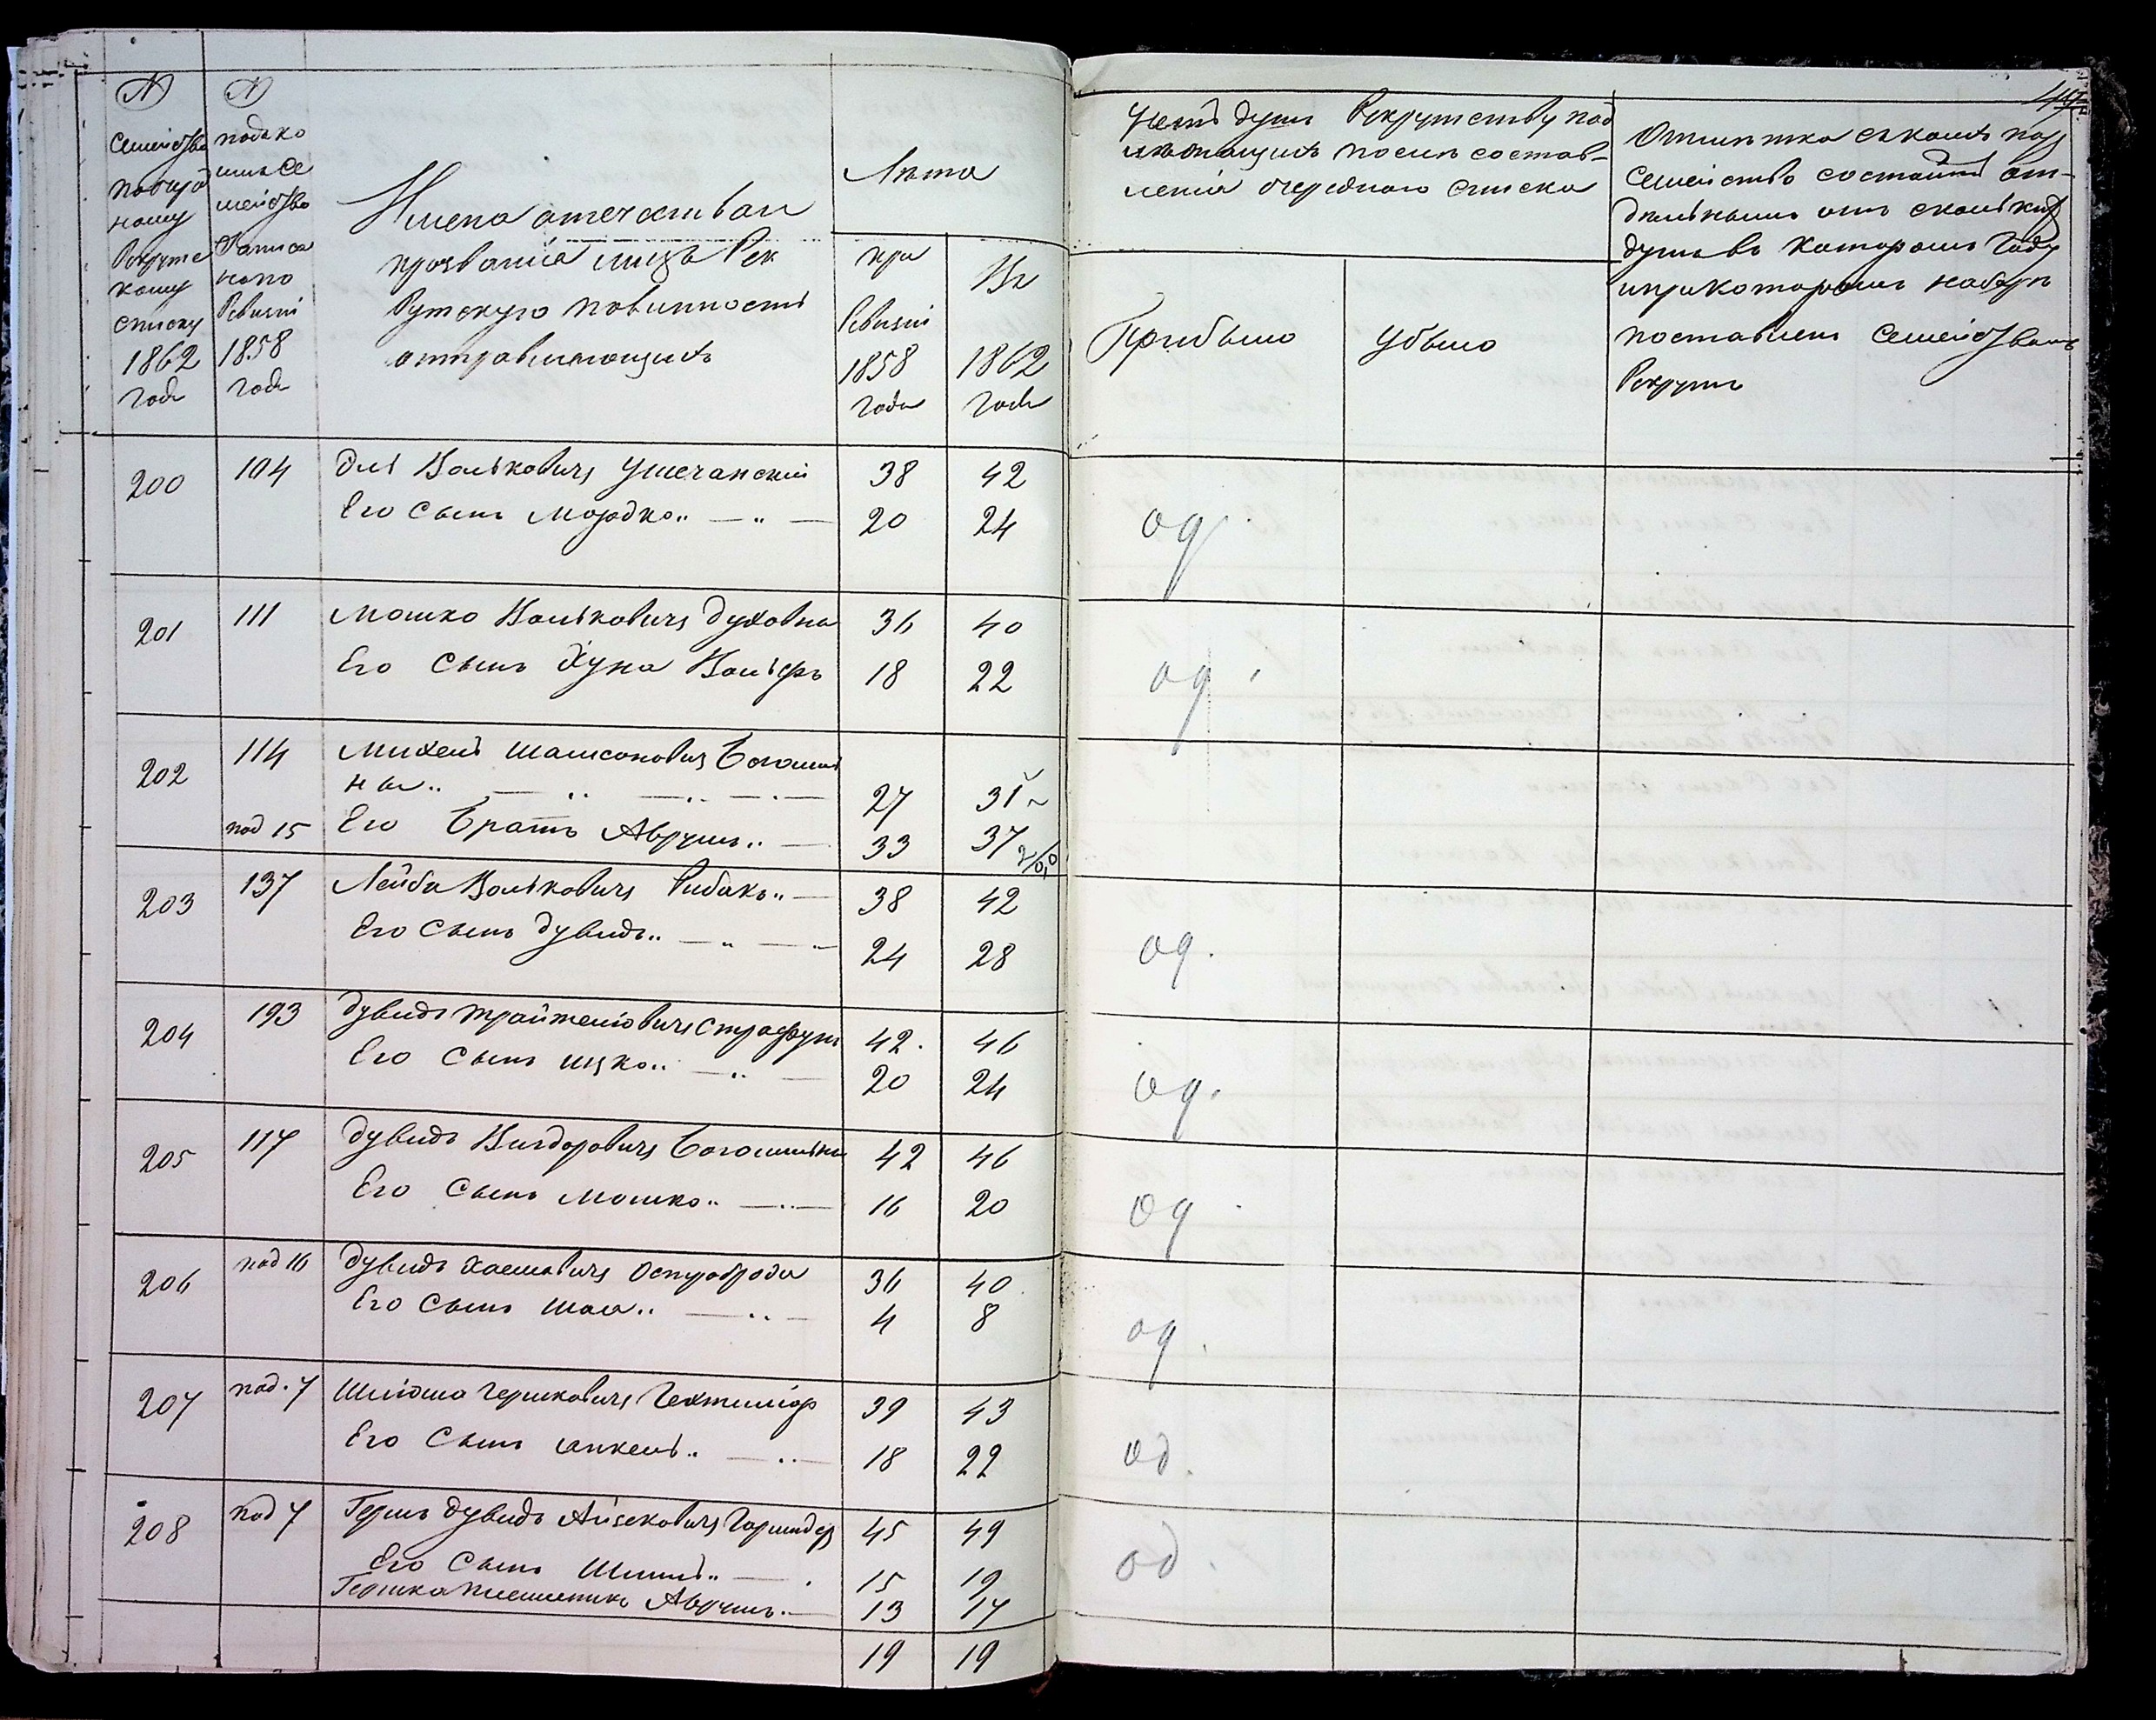 №
Семейства
по очеред
ному
Рекрутс
кому
списку
1862
года
№
подъко
имъ Се
мейство
Записа
но по
Ревизiи
1858
года
Имена отечества и
прозванiе лицъ Рек
рутскую повинность
отправляющихъ
Лета
при
Ревизiи
1858
года
Въ
1862
годе
Счетъ душъ Рекрутству под
лежащихъ после состав-
ленiя очереднаго списка
Прибыло
Убыло
44
Отметка съкакихъ пор
Семейство состоитъ от-
дельнымъ изъ сколькихъ
душъ въ которомъ Году
и при которомъ наборе
поставленъ Семействомъ
Рекрутъ
200 104 Эль Волькович Ушечанскiй 38 42
Его Сынъ Мордко „ — „ — 20 24 од.
201 111 Мошко Волькович Духовна 36 40
Его Сынъ Хуна Вольфъ 18 22 од.
202 114 Михель Шамсонович Богомиль
ны „ — „ — „ — 27 31
под 15 Его Братъ Аврумъ „ — 33 37
203 137 Лейба Волькович Рибакъ „ — 38 42
Его Сынъ Дувидъ „ — „ — „ 24 28 од.
204 193 Дувидъ Трайтелiович 42. 46
Его Сынъ Ицко „ — „ — 20 24 од.
205 117 Дувидъ Вигдорович Богомильны 42 46
Его Сынъ Мошко „ — „ — 16 20 од.
206 под 16 Дувидъ Хаемович Остроброда 36 40
Его Сынъ Шая „ — „ — 4 8 од.
207 под. 7 Шлiома Гершкович Гехтмiор 39 43
Его Сынъ Янкель „ — „ — 18 22 од.
208 под 7 Гершъ Дувидъ Айзекович 45 49
Его Сынъ Шмиль „ — 15 19 од.
Гершка племенникъ Аврумъ — 13 17
19 19